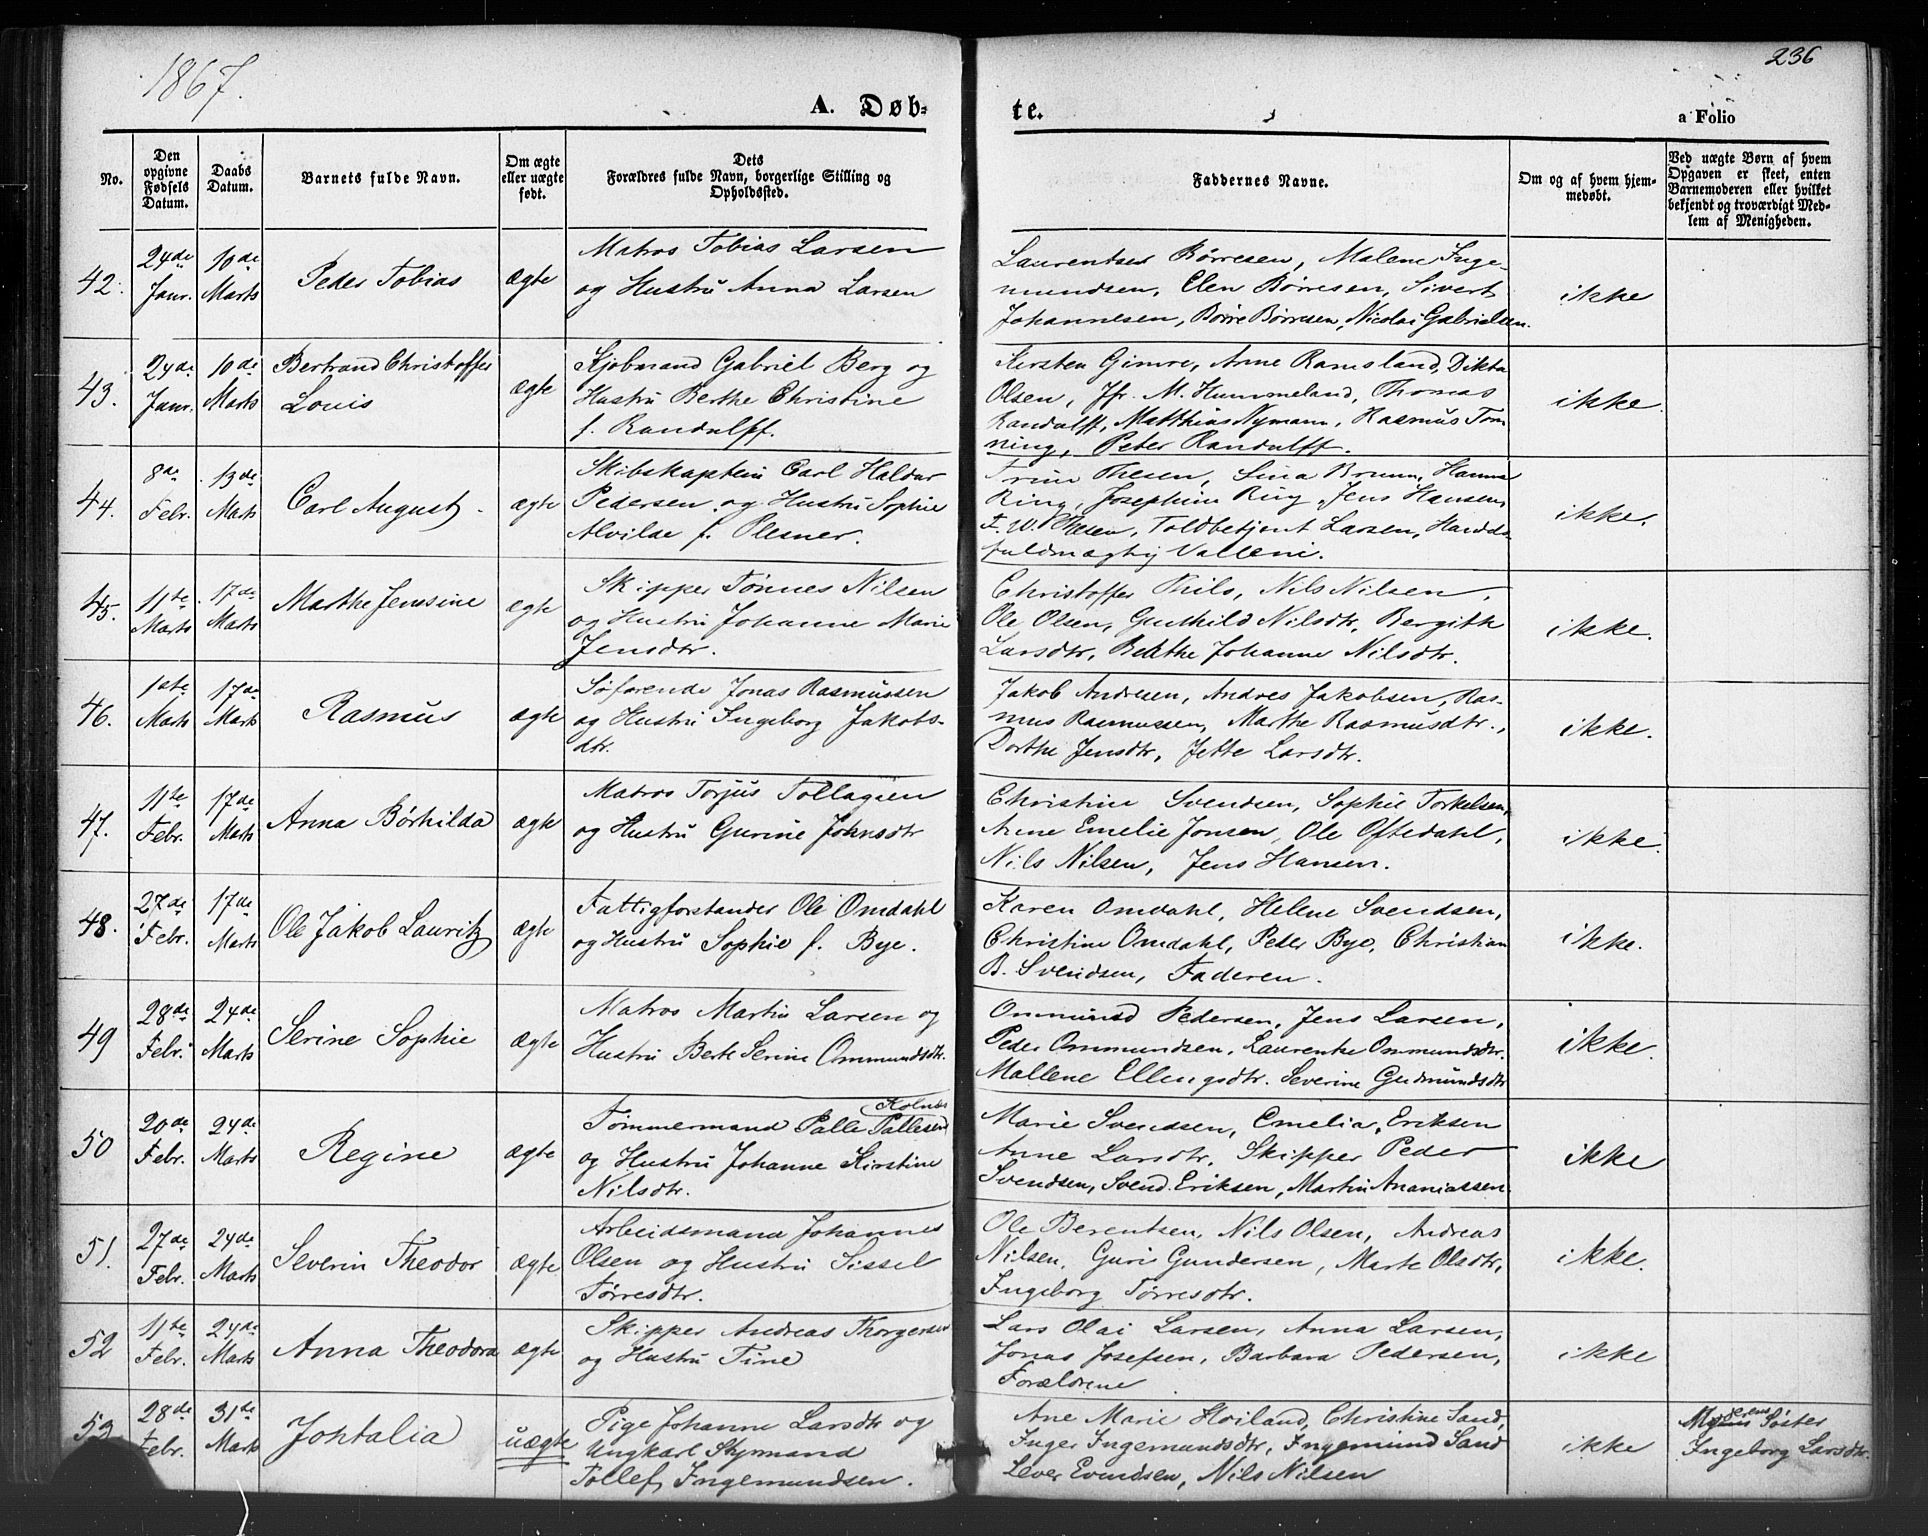 1867.
236
A. Døb-
te.
a Folio
No.
Den opgivne Fødsels Datum.
Daabs Datum.
Barnets fulde Navn.
Om ægte eller uægte født.
Dets Forældres fulde Navn, borgerlige Stilling og Opholdssted.
Faddernes Navne.
Om og af hvem hjem-medøbt.
Ved uægte Børn af hvem Opgaven er skeet, enten Barnemoderen eller hvilket bekjendt og troværdigt Med-lem af Menigheden.
42. 24de Janr. 10de Marts Peder Tobias ægte
Matros Tobias Larsen
og Hustru Anna Larsen
Laurentse Børresen, Malene Inge-
mundsen, Elen Børresen, Sivert
Johannesen, Børre Børresen, Nicolai Gabrielsen.
ikke
43. 24de Janr. 10de Marts Bertrand Christoffer
Louis ægte
Kjøbmand Gabriel Berg og
Hustru Berthe Christine
f. Randulff.
Kirsten Gimre, Anne Ramsland, Dikta
Olsen, Jfr. M. Hummeland, Thomas
Randulff, Matthias Nymann, Rasmus Ton
ning, Peter Randulff.
ikke.
44. 8de Febr. 13de Marts Carl August ægte
Skibskaptein Carl Haldur
Pedersen og Hustru Sophie
Alvilde f. Plesner.
Trine Thesen, Lina Bruun, Hanna
Ring, Josephine Ring, Jens Hansen,
F. W. Thesen, Toldbetjent Larsen, Handds-
fuldmægtig
ikke.
45. 11te Marts 17de Marts Marthe Jensine ægte
Skipper Tønnes Nilsen
og Hustru Johanne Marie
Jensdtr.
Christoffer Thils, Nils Nilsen,
Ole Olsen, Gunhild Nilsdtr, Bergith
Larsdtr, Berthe Johanne Nilsdtr.
ikke.
46. 1ste Marts 17de Marts Rasmus ægte
Søfarende Jonas Rasmussen
og Hustru Ingeborg Jakobs-
dtr.
Jakob Andresen, Andres Jakobsen, Ras-
mus Rasmussen, Marthe Rasmusdtr.,
Dorthe Jensdtr, Jette Larsdtr.
ikke.
47. 11te Febr. 17de Marts Anna Børhilda ægte
Matros Torjus Tollagsen
og Hustru Gurine Johnsdtr
Christine Svendsen, Sophie Torkelsen,
Anne Emelie Jonsen, Ole Oftedahl,
Nils Nilsen, Jens Hansen.
ikke.
48. 27de Febr. 17de Marts Ole Jakob Lauritz ægte
Fattigforstander Ole Omdahl
og Hustru Sophie f. Bye.
Karen Omdahl, Helene Svendsen,
Christine Omdahl, Peder Bye, Christian
B. Svendsen, Faderen.
ikke.
49 28de Febr. 24de Marts Serine Sophie ægte
Matros Martin Larsen og
Hustru Berte Serine Ommundsdtr.
Ommund Pedersen, Jens Larsen,
Peder Ommundsen, Laurentze Ommundsdtr.
Mallene Ellingsdtr. Severine Gudmundsdtr
ikke.
50 20de Febr. 24de Marts Regine ægte
Kolnes
Tømmermand Palle Pallesen
og Hustru Johanne Kirstine
Nilsdtr.
Marie Svendsen, Emelia Eriksen
Anne Larsdtr, Skipper Peder
Svendsen, Svend Eriksen, Martin Ananiassen
ikke
51. 27de Febr. 24de Marts Severin Theodor ægte
Arbeidsmand Johannes
Olsen og Hustru Sissel
Tørresdtr.
Ole Berentsen, Nils Olsen, Andreas
Nilsen, Guri Gundersen, Marte Olsdtr,
Ingeborg Tørresdtr.
ikke.
52 11te Febr. 24de Marts Anna Theodora ægte
Skipper Andreas Thorgersen
og Hustru Tine
Lars Olai Larsen, Anna Larsen,
Jonas Josefsen, Barbara Pedersen,
Forældrene
ikke
53. 28de Febr. 31te Marts Johtalia uægte
Pige Johanne Larsdtr og
Ungkarl Styrmand
Tollef Ingemundsen.
Ane Marie Hoiland, Christine Sand,
Inger Ingemundsdtr, Ingemund Sand
Lever Evendsen, Nils Nilsen
ikke
Søster
Ingeborg Larsdtr.